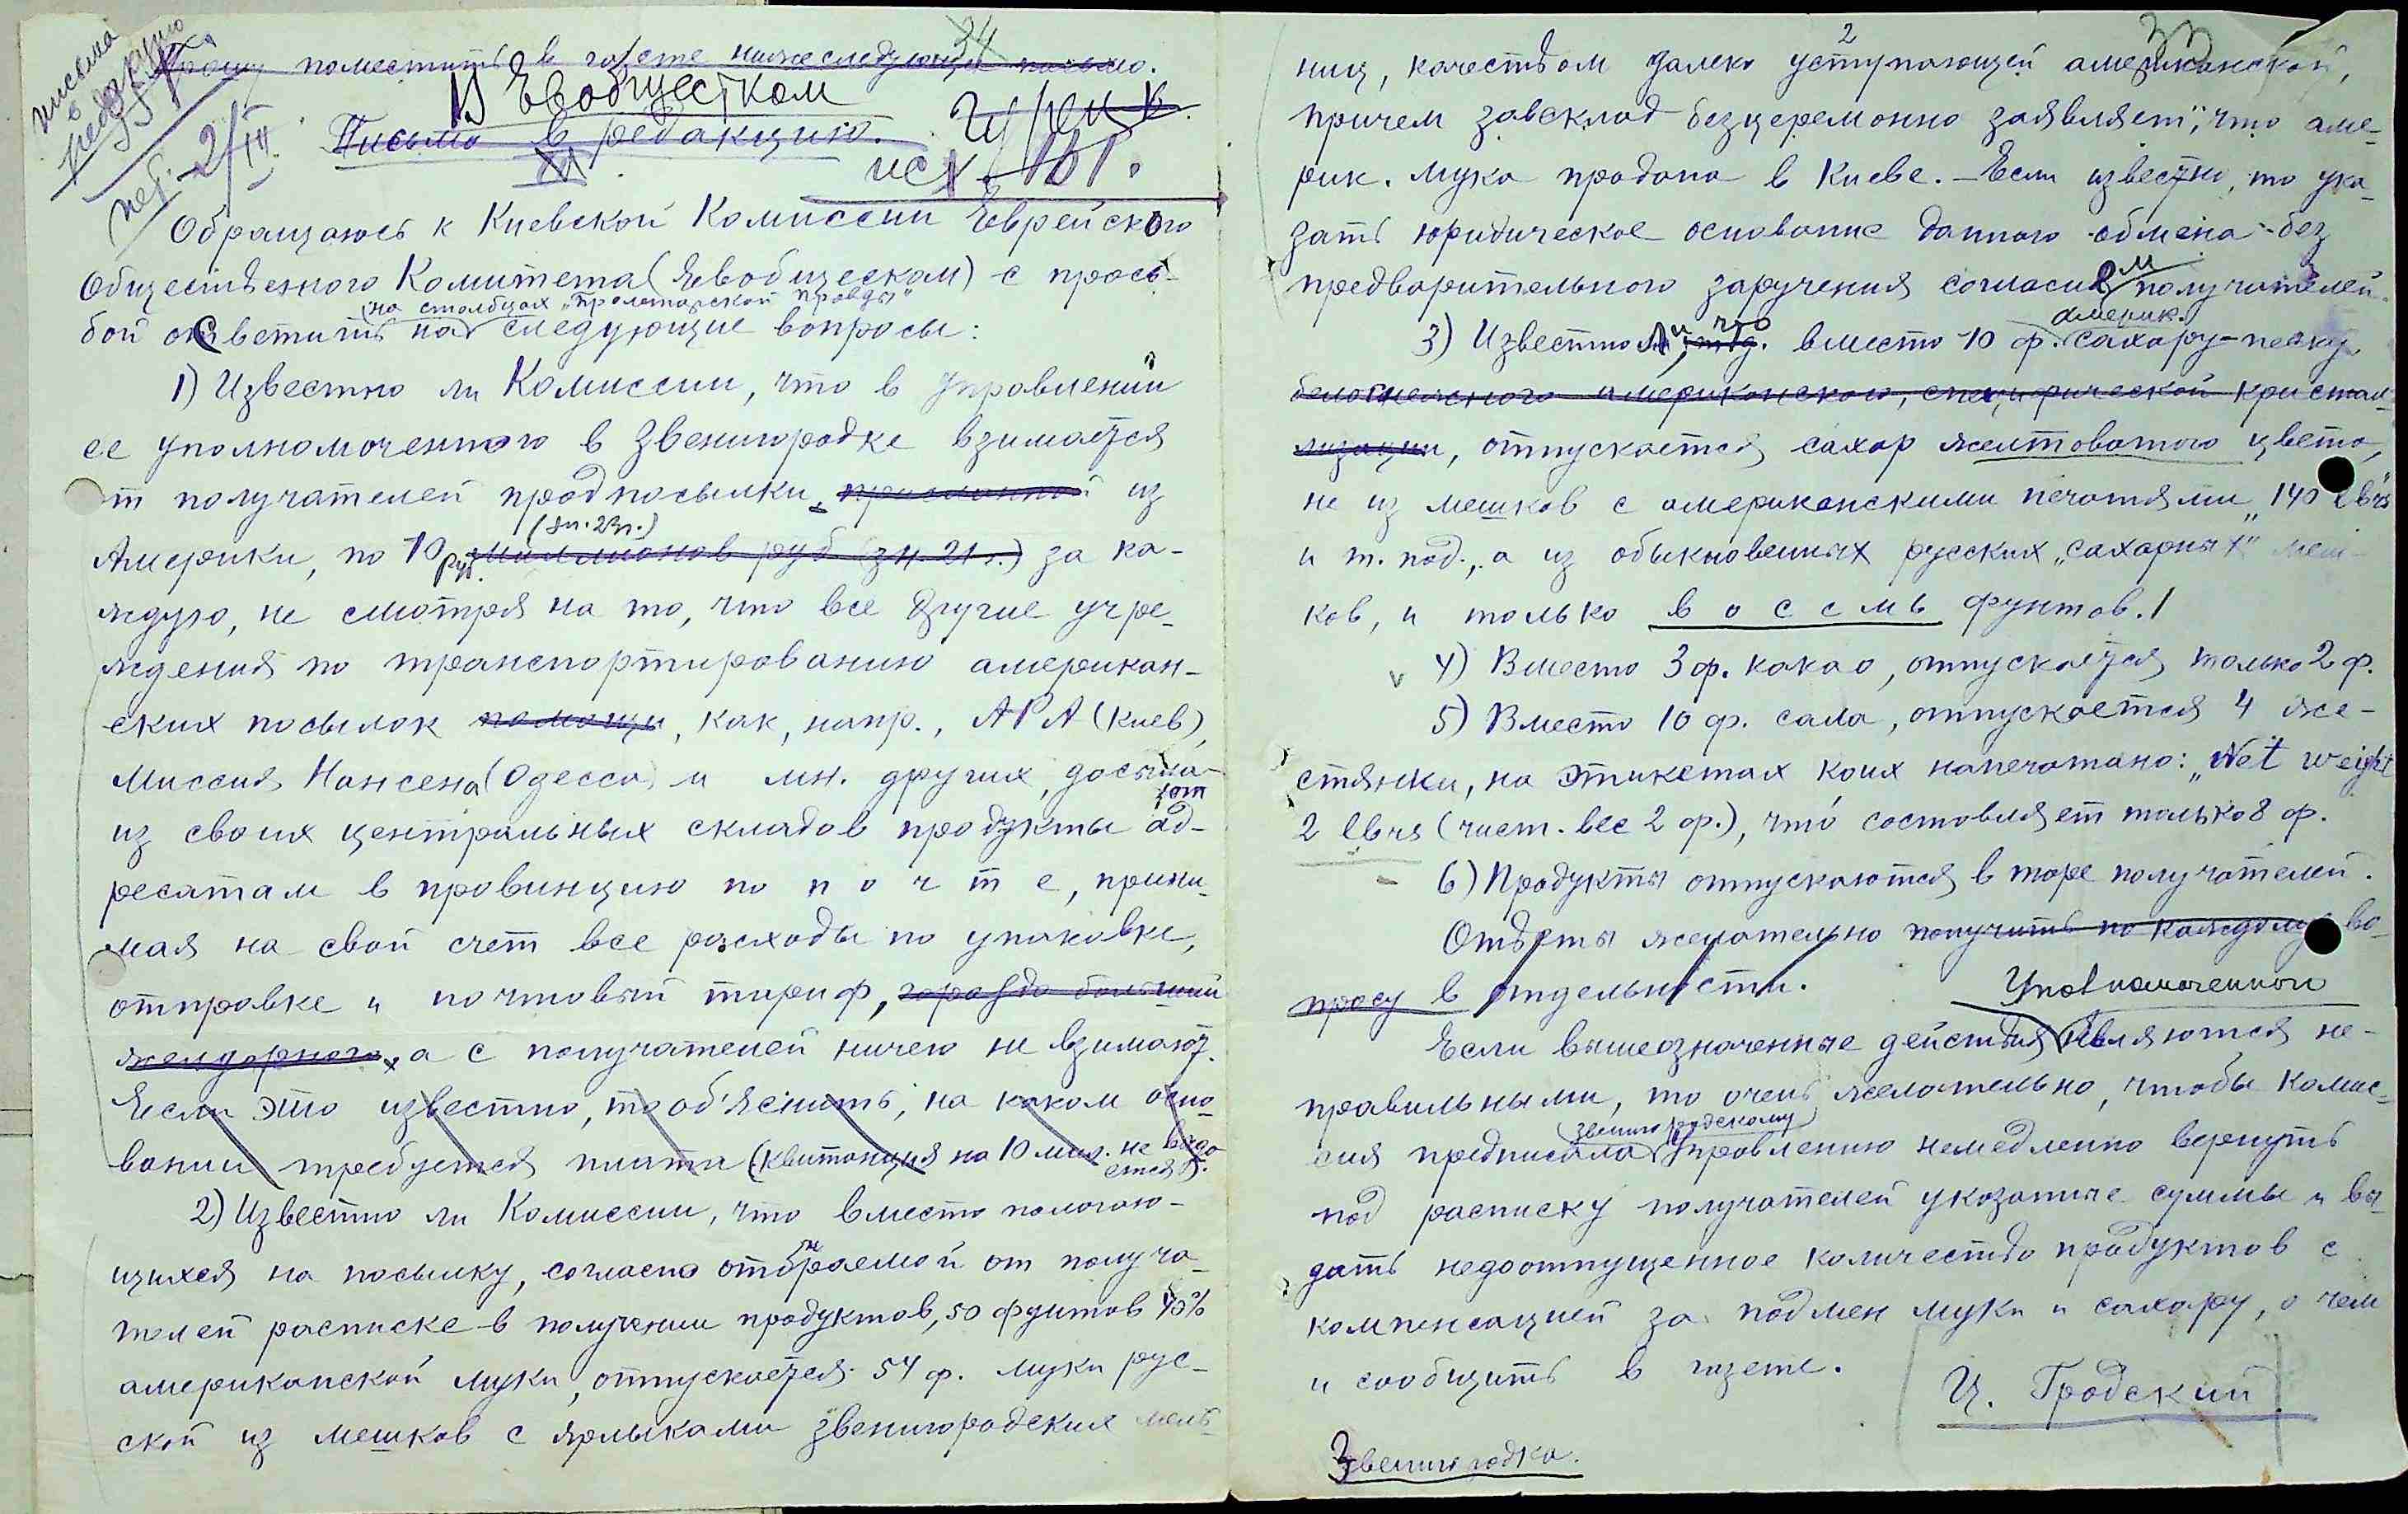 письма
в
редакцию
34
Прошу поместить в газете нижеследующее письмо.
В Евобщестком
Письмо в редакцию.
исх. 161.
2/III
Обращаюсь к Киевской Комиссии Еврейского
Общественного Комитета (Евобщеском) с прось-
(на столбцах „Пролетарской правды"
бой осветить на следующие вопросы:
1) Известно ли Комиссии, что в Управлении
ее уполномоченного в Звенигородке взимается
от получателей продпосылки, присланной из
(зн. 23 г.)
Америки, по 10 руб. миллионов руб (зн. 21 г.) за ка-
ждую, не смотря на то, что все другие учре-
ждения по транспортированию американ-
ских посылок помощи, как, напр., АРА (Киев),
Миссия Нансена (Одесса) и мн. других, досыла-
ют
из своих центральных складов продукты ад-
ресатам в провинцию по п о ч т е, прини-
мая на свой счет все расходы по упаковке,
отправке и почтовый тариф, гораздо больший
желдорного, а с получателей ничего не взимают.
Если это известно, то об'яснить, на каком осно-
вании требуется плата (квитанция на 10 мил. не выда-
ется).
2) Известно ли Комиссии, что вместо полагаю-
щихся на посылку, согласно отбираемой от получа-
телей расписке в получении продуктов, 50 фунтов 70%
американской муки, отпускается 54 ф. муки рус-
ской из мешков с ярлыками звенигородских мель-
2
33
ниц, качеством далеко уступающей американской,
причем завсклад безцеремонно заявляет, что аме-
рик. мука продана в Киеве. – Если известно, то ука-
зать юридическое основание данного обмена без
предварительного заручения согласием получателей.
америк.
3) Известно ли, что вместо 10 ф. сахару-песку
белоснежного американского, специфической кристал-
лизации, отпускается сахар желтоватого цвета,
не из мешков с американскими печатями „140 lbrs
и т. под., а из обыкновенных русских „сахарных" меш-
ков, и только в о с е м ь фунтов.!
4) Вместо 3 ф. какао, отпускается только 2 ф.
5) Вместо 10 ф. сала, отпускается 4 же-
стянки, на этикетах коих напечатано: „Net weight
2 lbrs (чист. вес 2 ф.), что составляет только 8 ф.
6) Продукты отпускаются в таре получателей.
Ответы желательно получить по каждому во-
просу в отдельности.
Уполномоченного
Если вышеозначенные действия являются не-
правильными, то очень желательно, чтобы Комис-
звенигородскому
сия предписала Управлению немедленно вернуть
под расписку получателей указание суммы и вы-
дать недоотпущенное количество продуктов с
компенсацией за подмен муки и сахару, о чем
и сообщить в газете.
И. Гродский
Звенигородка.